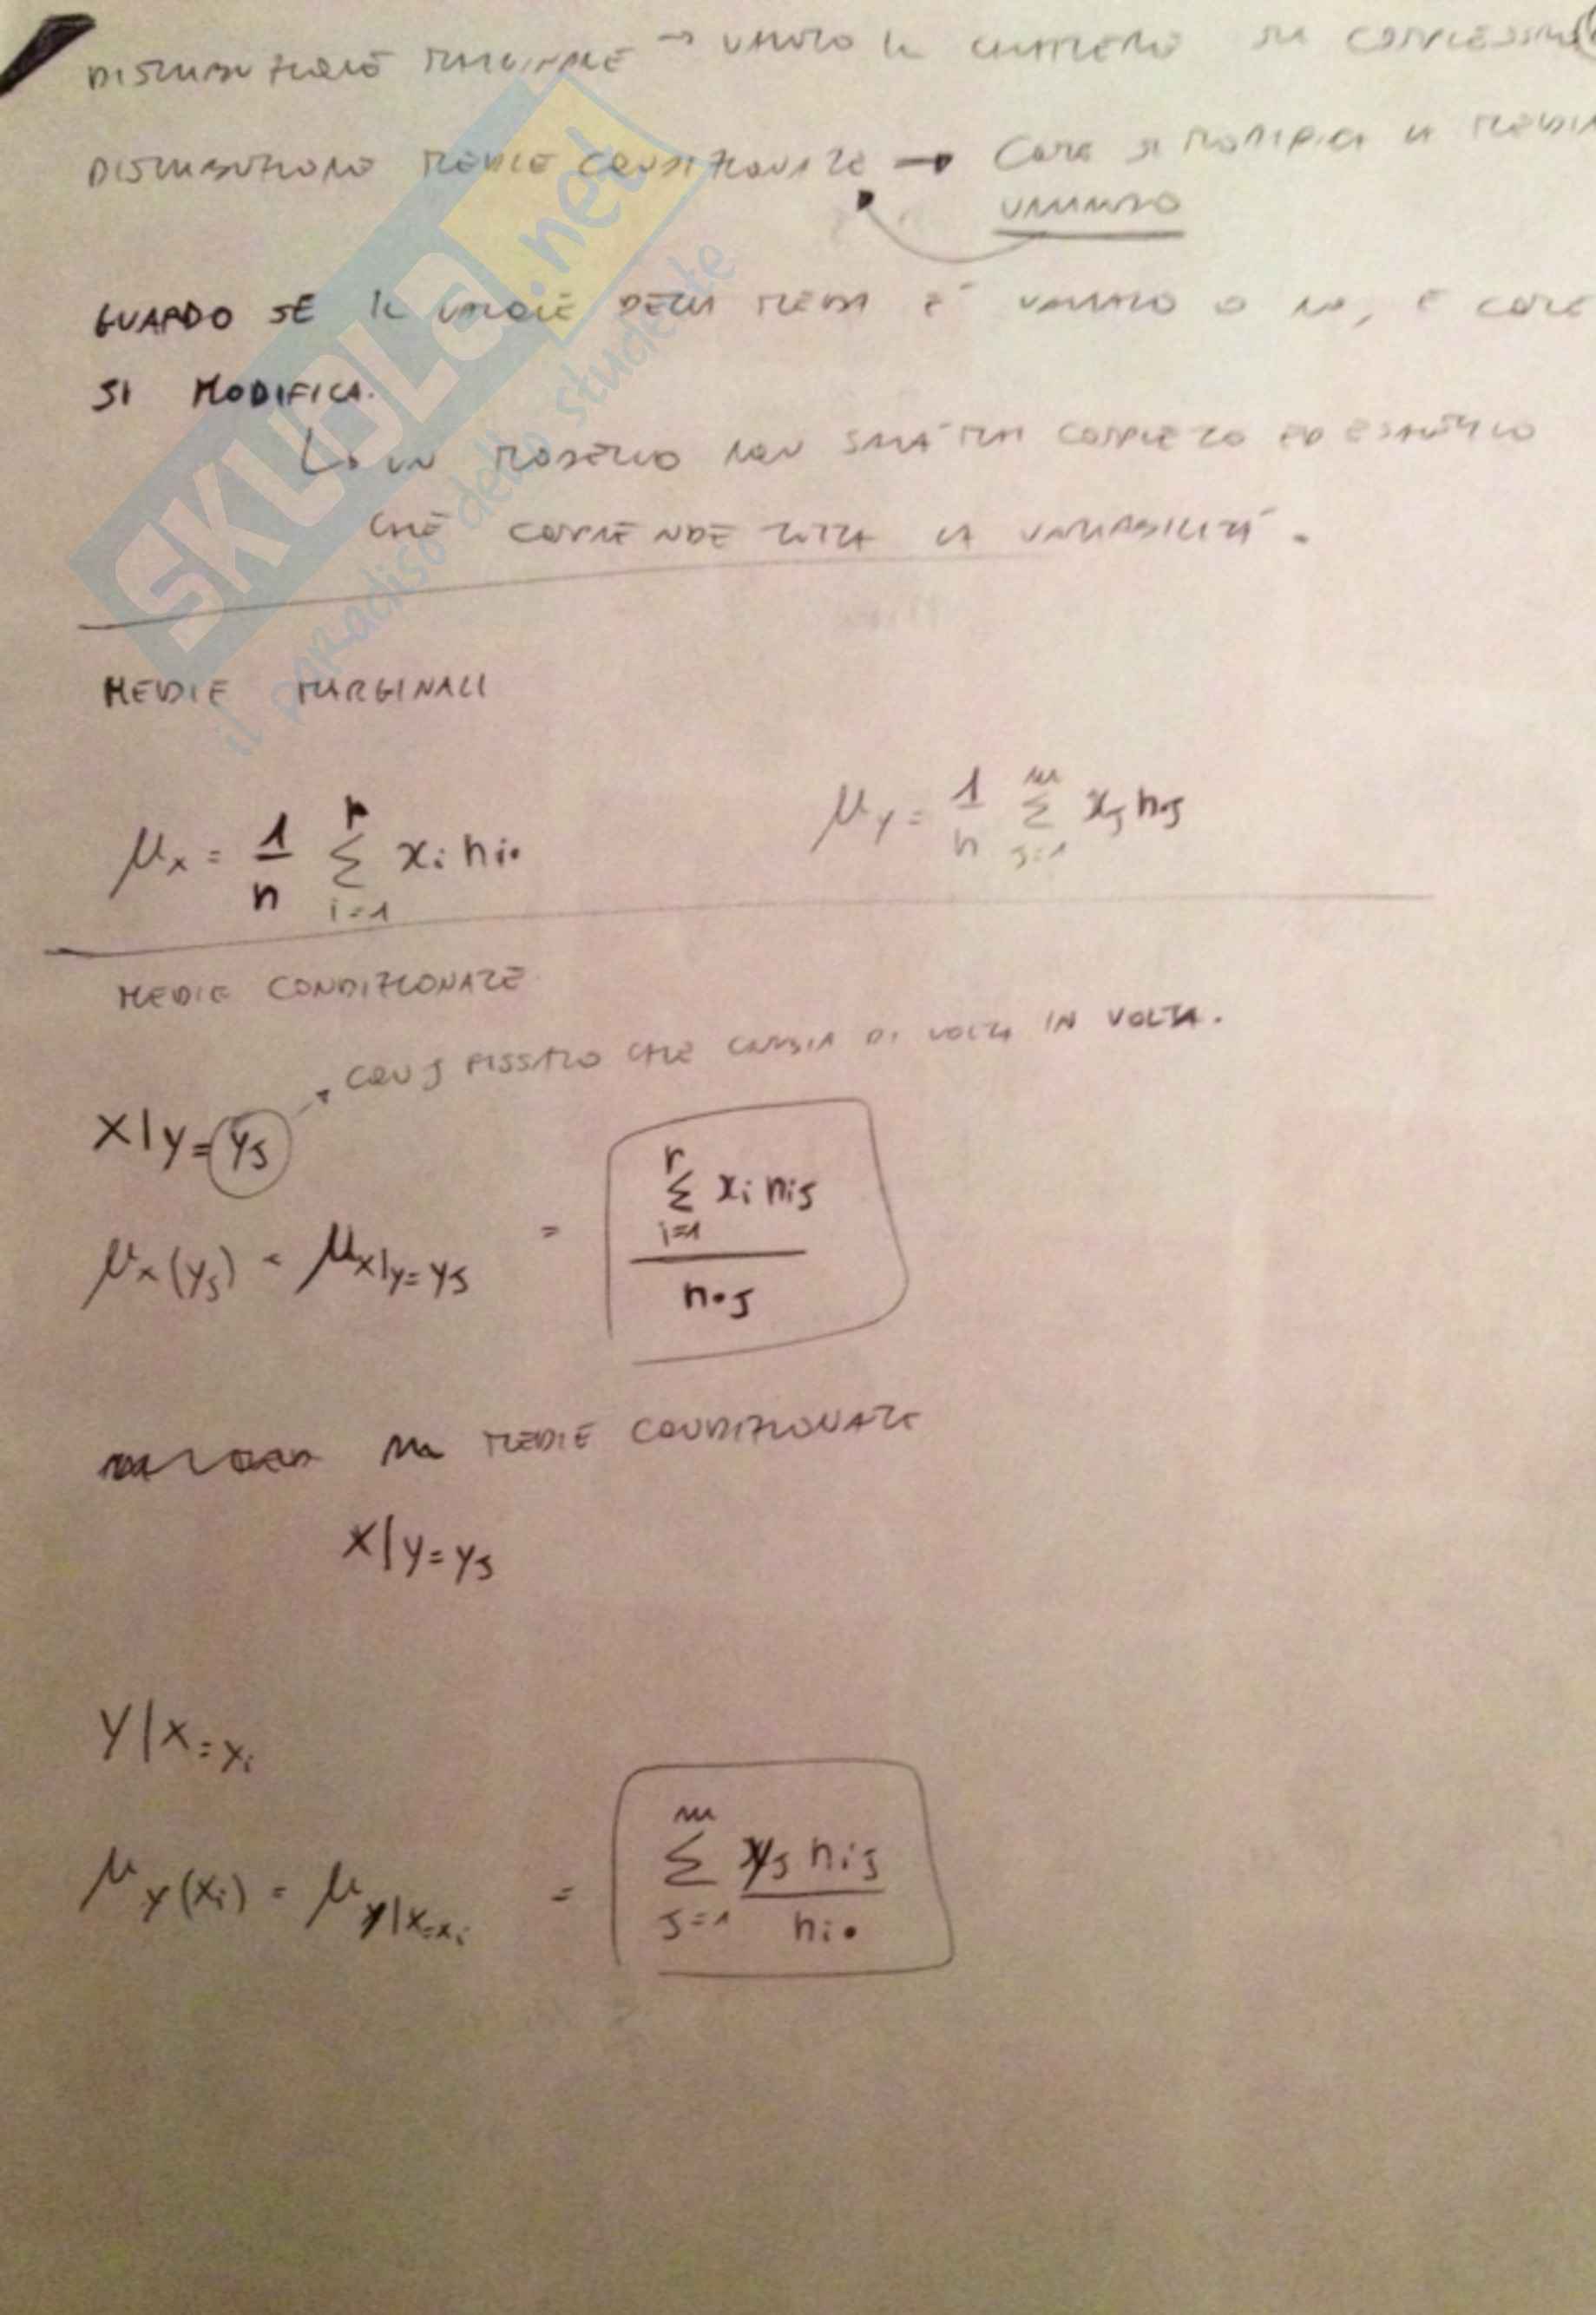 DISTRIBUZIONE MARGINALE → VALUTO IL CARATTERE SU
DISTRIBUZIONE MEDIE CONDIZIONATE → COME SI MODIFICA LA MEDIA
GUARDO SE IL VALORE DELLA MEDIA E' VARIATO O NO, E COME
SI MODIFICA.
↳ UN MODELLO NON SARÀ MAI COMPLETO ED ESAUSTIVO
CHE COMPRENDE TUTTA LA VARIABILITÀ.
MEDIE MARGINALI
μx = 1/n Σ i=1 r xi ni•
μy = 1/n Σ j=1 m xj n•j
MEDIE CONDIZIONATE
CON J FISSATO CHE CAMBIA DI VOLTA IN VOLTA.
X|y=yj
μx(yj) = μx|y=yj = Σ i=1 r xi nij / n•j
m MEDIE CONDIZIONATE
X|y=yj
Y|x=xi
μy(xi) = μy|x=xi = Σ j=1 m yj nij / ni•
SKUOLA.net
il paradiso dello studente